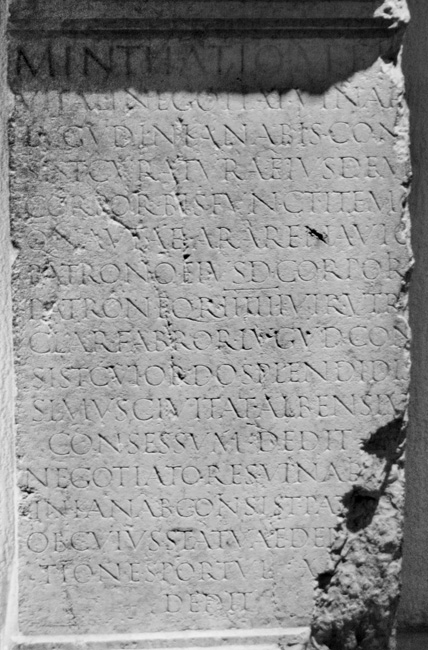 MINTHATIONI
VITALI NEGOTIAT VINAR
LVGVD IN KANABIS CON
SIST CVRATVRAE EIVSDEM
CORPOR BIS FVNCT ITEM
NAVTAE ARARE NAVIG
PATRONO EIVSD CORPOR
PATRON EQ R IIIIII VIR VTRI
CLAR FABROR LVGVD CON
SIST CVI ORDO SPLENDIDI
SIMVS CIVITAT ALBENSIVM
CONSESSVM DEDIT
NEGOTIATORES VINAR
IN KANAB CONSIST PA
OB CVIVS STATVAE DE
TIONE SPORTVL
DEDIT